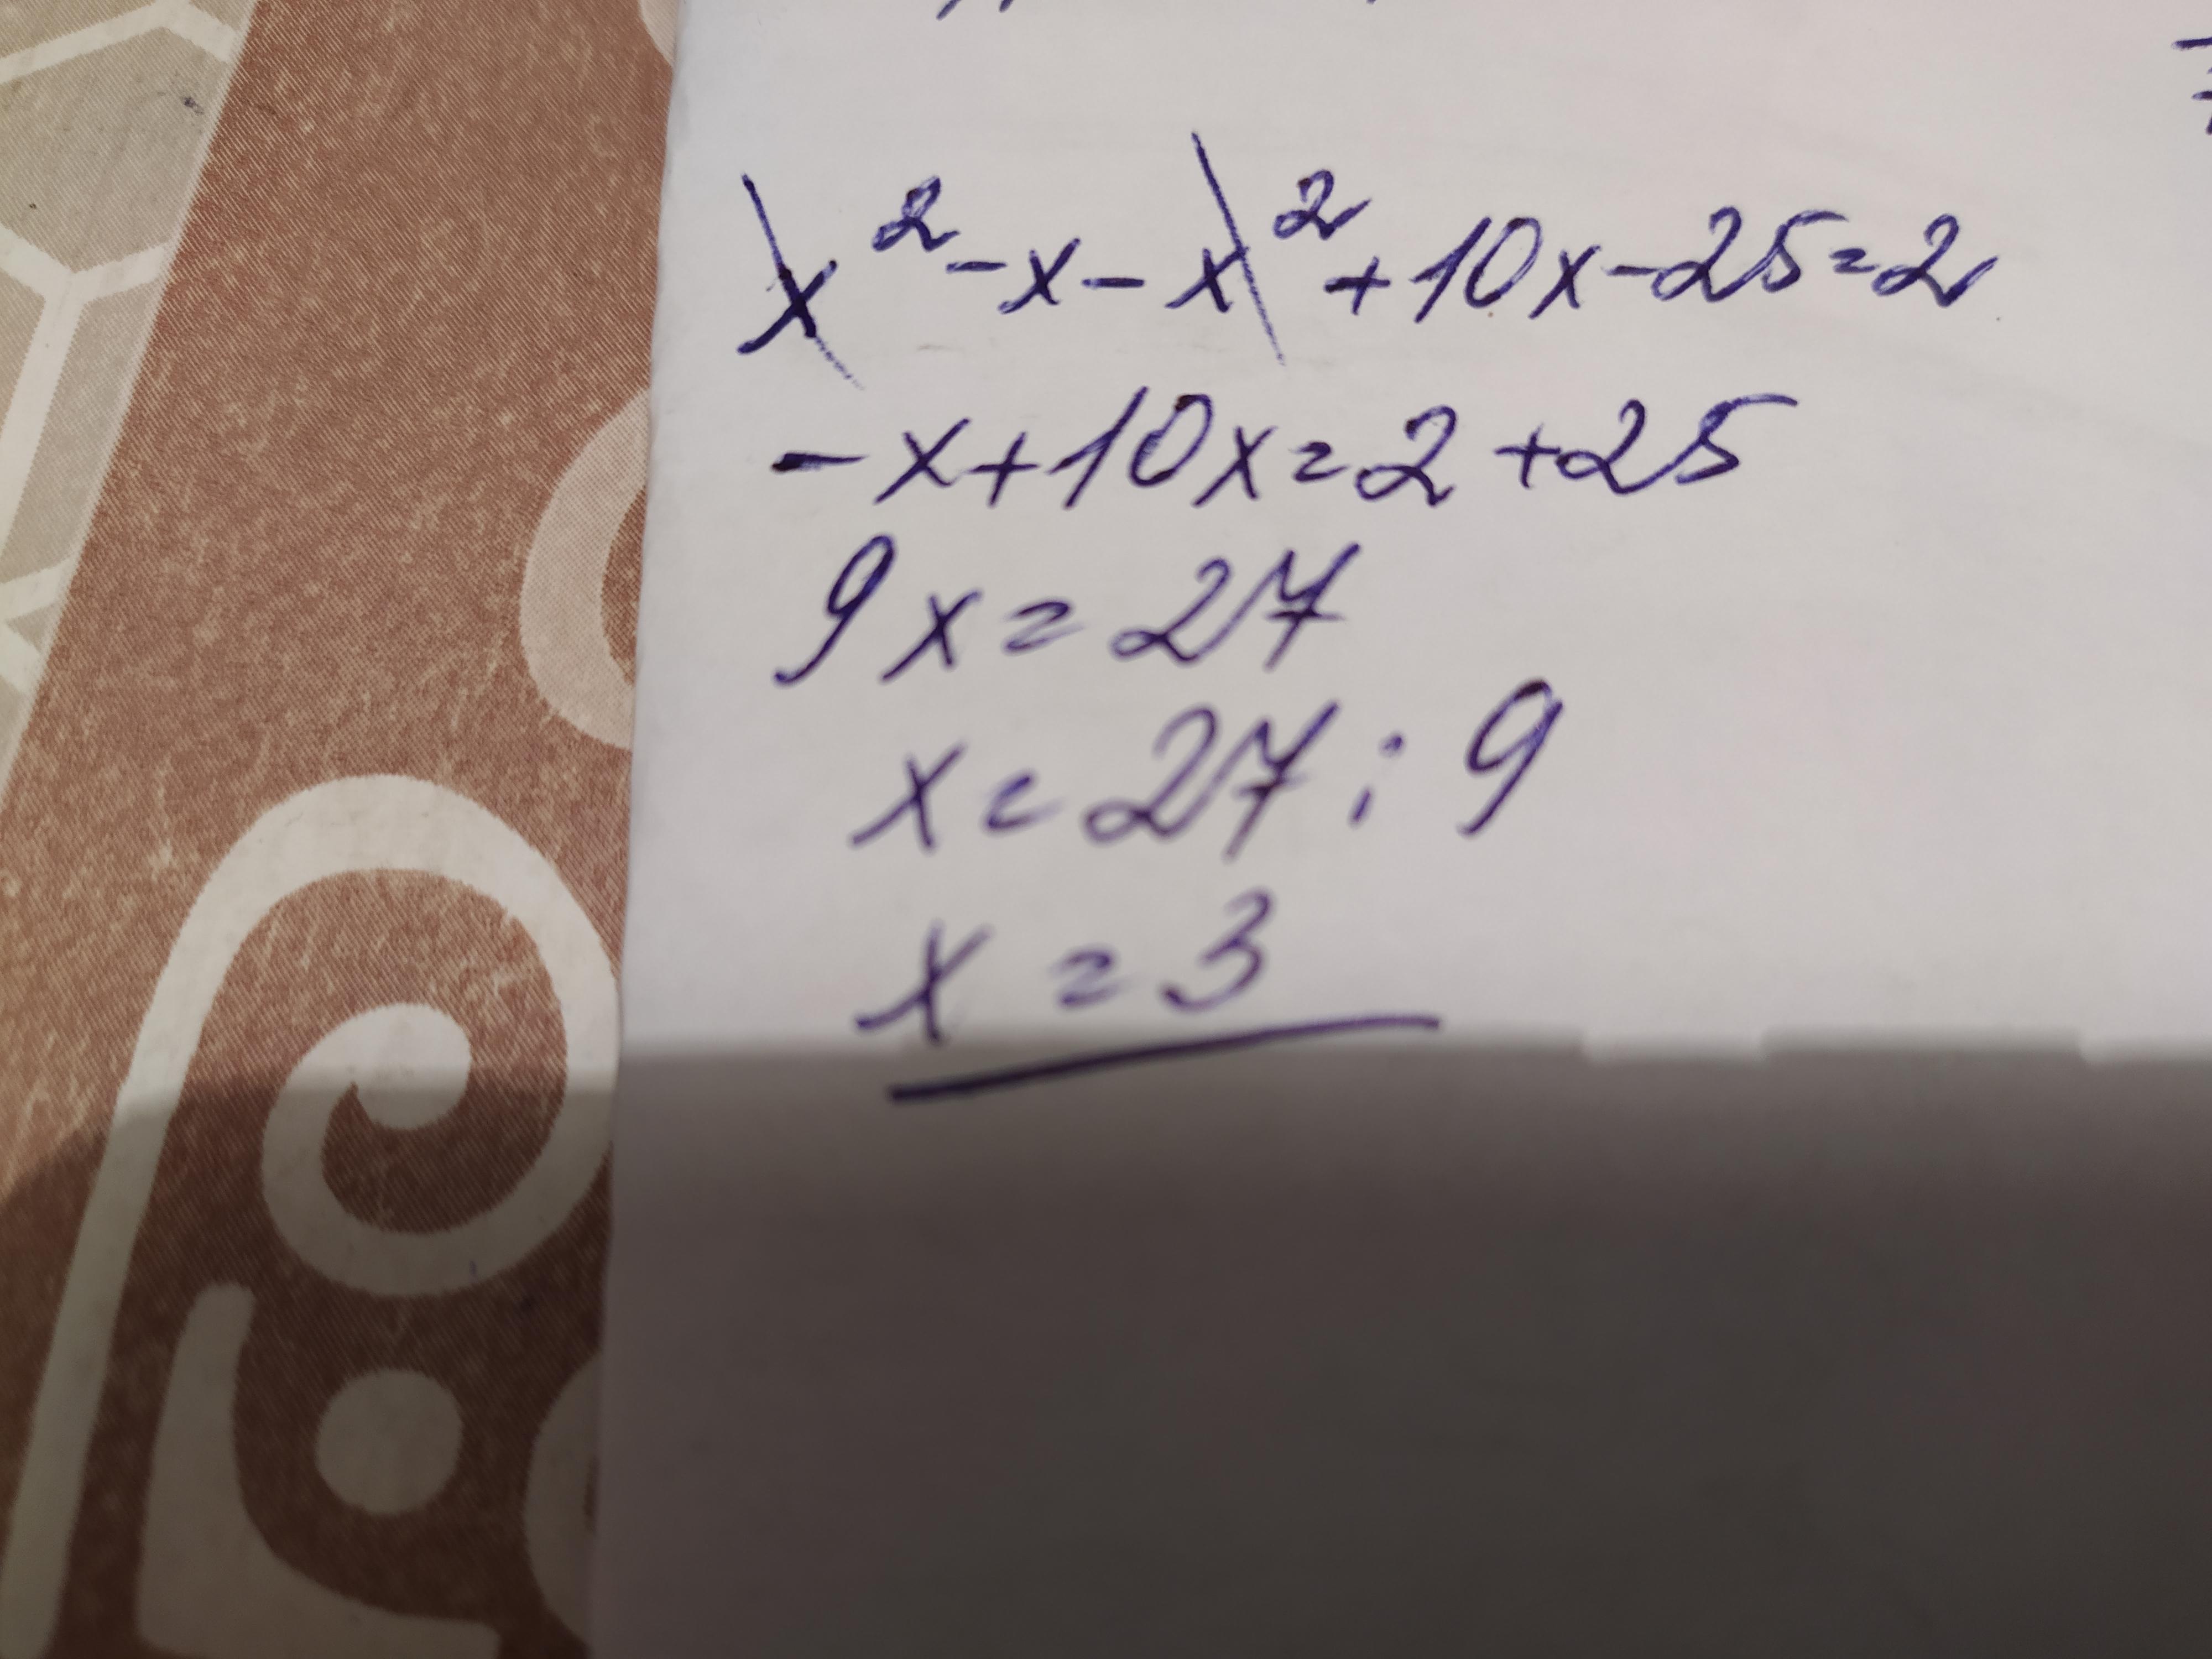 x² - x - x² + 10x - 25 = 2
- x + 10x = 2 + 25
9x = 27
x = 27 : 9
x = 3